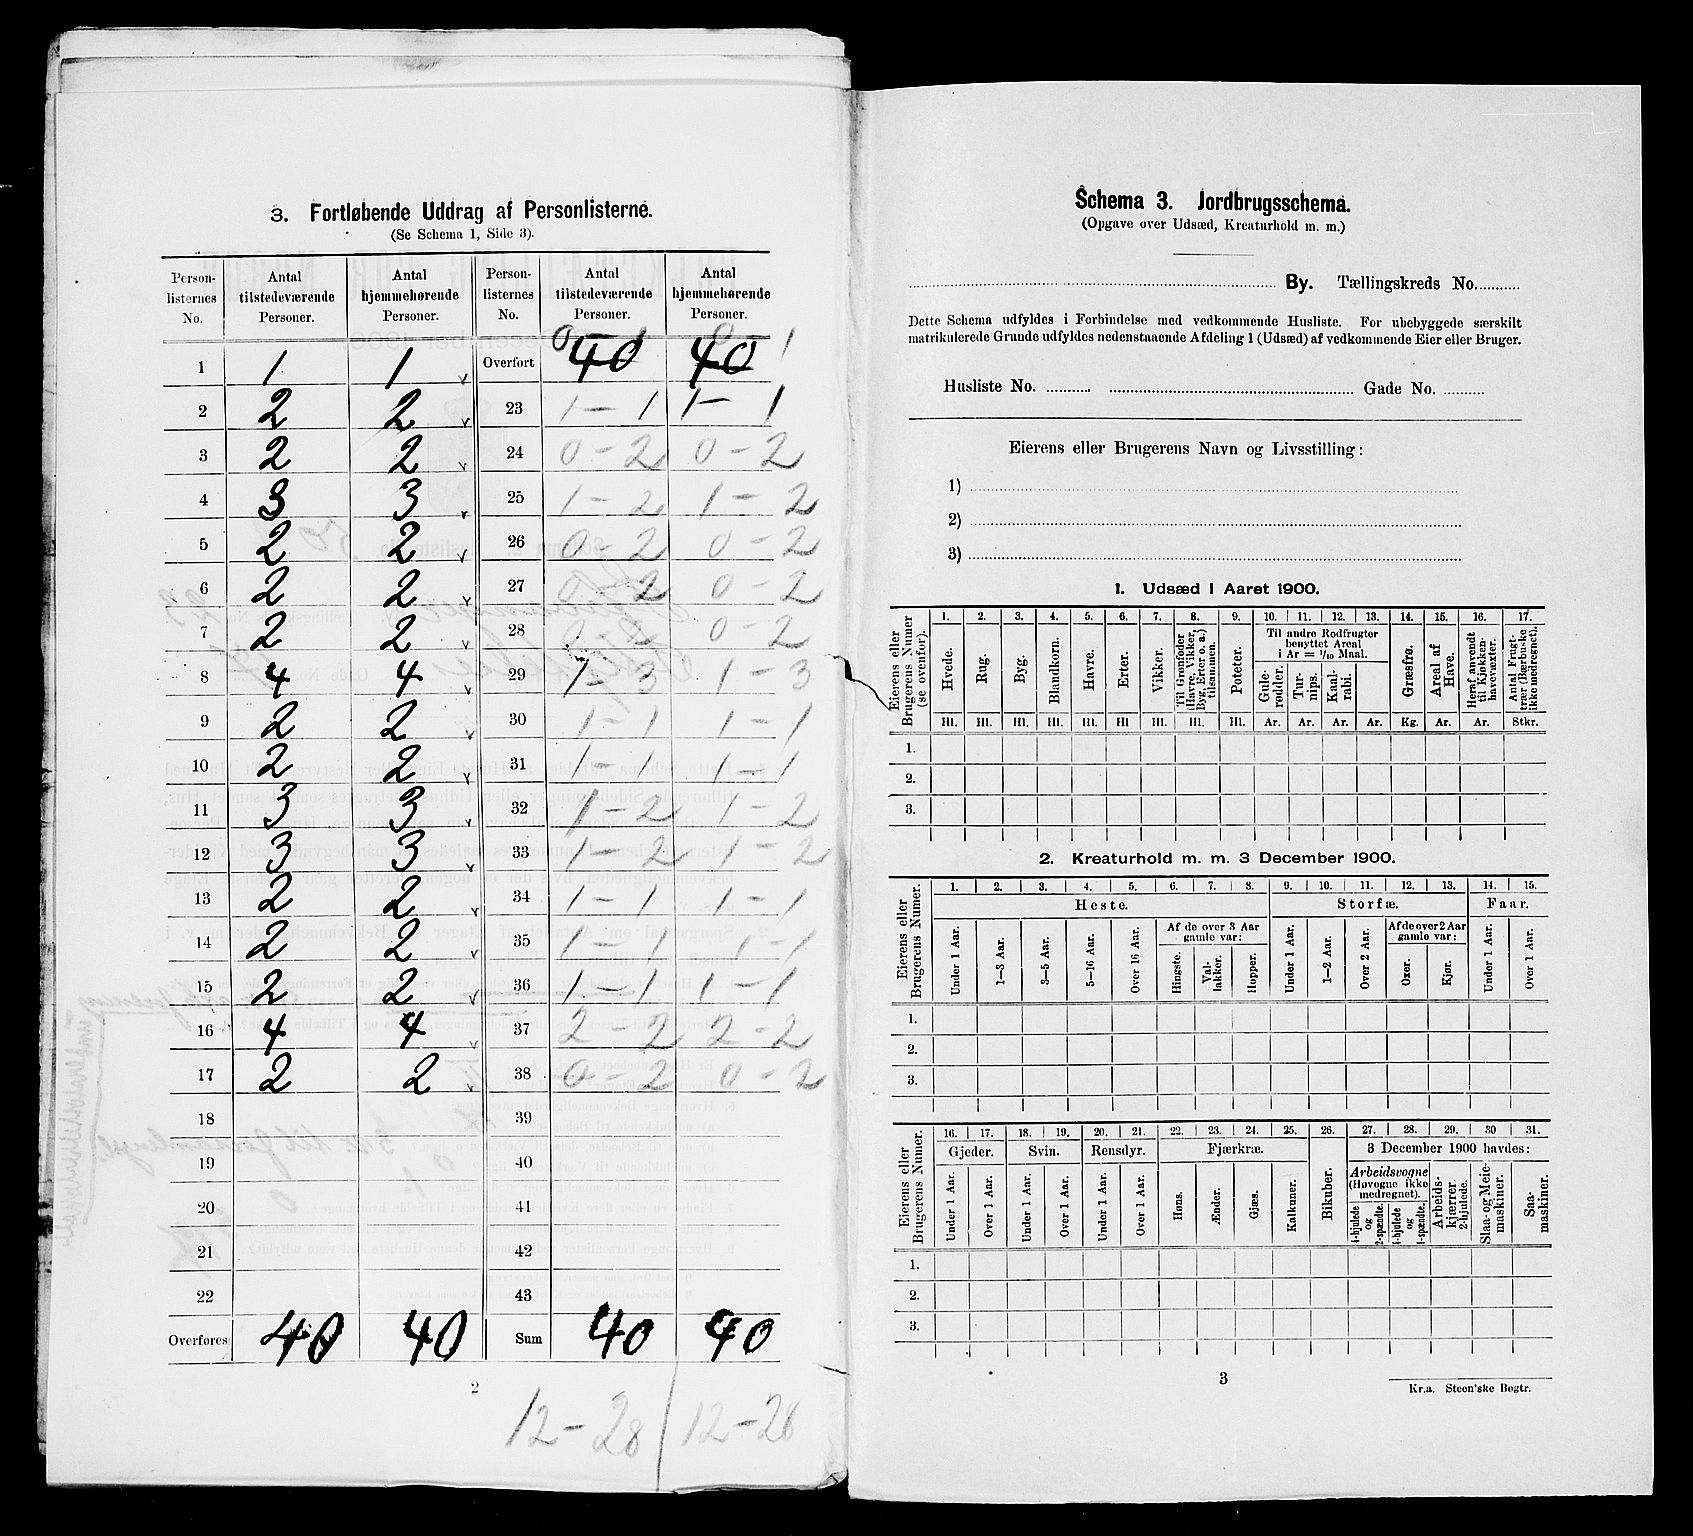 3. Fortløbende Uddrag af Personlisterne.
(Se Schema 1, Side 3).
Person-listernes No. | Antal tilstedeværende Personer. | Antal hjemmehørende Personer. | Person-listernes No. | Antal tilstedeværende Personer. | Antal hjemmehørende Personer.
0 – 1 0 1
1 1 1 v Overført 40 40
2 2 2 v 23 1 – 1 1 – 1
3 2 2 v 24 0 – 2 0 – 2
4 3 3 v 25 1 – 2 1 – 2
5 2 2 v 26 0 – 2 0 – 2
6 2 2 v 27 0 – 2 0 – 2
7 2 2 v 28 2 0 – 2
8 4 4 v 29 1 – 3 1 – 3
9 2 2 v 30 1 – 1 1 – 1
10 2 2 v 31 1 – 1 1 – 1
11 3 3 32 1 – 2 1 – 2
12 3 3 v 33 1 – 2 1 – 2
13 2 2 v 34 1 – 1 1 – 1
14 2 2 v 35 1 – 1 1 – 1
15 2 2 v 36 1 – 1 1 – 1
16 4 4 v 37 2 – 2 2 – 2
17 2 2 v 38 0 – 2 0 – 2
18 39
19 40
20 41
21 42
22 43
Overføres 40 40 Sum 40 40
2
12 – 28 / 12 – 28
Schema 3. Jordbrugsschema.
(Opgave over Udsæd, Kreaturhold m. m.)
By. Tællingskreds No.
Dette Schema udfyldes i Forbindelse med vedkommende Husliste. For ubebyggede særskilt
matrikulerede Grunde udfyldes nedenstaaende Afdeling 1 (Udsæd) af vedkommende Eier eller Bruger.
Husliste No. Gade No.
Eierens eller Brugerens Navn og Livsstilling:
1)
2)
3)
1. Udsæd i Aaret 1900.
Eierens eller Brugerens Numer (se ovenfor).
1. 2. 3. 4. 5. 6. 7. 8. 9. 10. 11. 12. 13. 14. 15. 16. 17.
Til andre Rodfrugter benyttet Areal i Ar = 1/10 Maal.
Hvede. Rug. Byg. Blandkorn. Havre. Erter. Vikker. Til Grønfoder (Havre, Vikker, Byg, Erter o. a.) tilsammen. Poteter. Gule-rødder. Tur-nips. Kaal-rabi. Græsfrø. Areal af Have. Heraf anvendt til Kjøkken-havevæxter. Antal Frugt-trær (Bærbuske ikke medregnet).
Hl. Hl. Hl. Hl. Hl. Hl Hl. Hl. Hl. Ar. Ar. Ar. Ar. Kg. Ar. Ar. Stkr.
1.
2.
3.
2. Kreaturhold m. m. 3 December 1900.
Eierens eller Brugerens Numer.
1. 2. 3. 4. 5. 6. 7. 8. 9. 10. 11. 12. 13. 14. 15.
Heste. Storfæ. Faar.
Af de over 3 Aar gamle var: Af de over 2 Aar gamle var:
Under 1 Aar. 1–3 Aar. 3–5 Aar. 5–16 Aar. Over 16 Aar. Hingste. Val-lakker. Hopper. Under 1 Aar. 1–2 Aar. Over 2 Aar. Oxer. Kjør. Under 1 Aar. Over 1 Aar.
1.
2.
3.
Eierens eller Brugerens Numer.
16. 17. 18. 19. 20. 21. 22. 23. 24. 25. 26. 27. 28. 29. 30 31.
Gjeder. Svin. Rensdyr. Fjærkræ. 3 December 1900 havdes:
Arbeidsvogne (Høvogne ikke medregnet).
Under 1 Aar. Over 1 Aar. Under 1 Aar. Over 1 Aar. Under 1 Aar. Over 1 Aar. Høns. Ænder. Gjæs. Kalkuner. Bikuber. 4-hjulede og 2-spændte. 4-hjulede og 1-spændte. Arbeids-kjærrer, 2-hjulede. Slaa- og Meie-maskiner. Saa-maskiner.
1.
2.
3.
3
Kr.a. Steen'ske Bogtr.